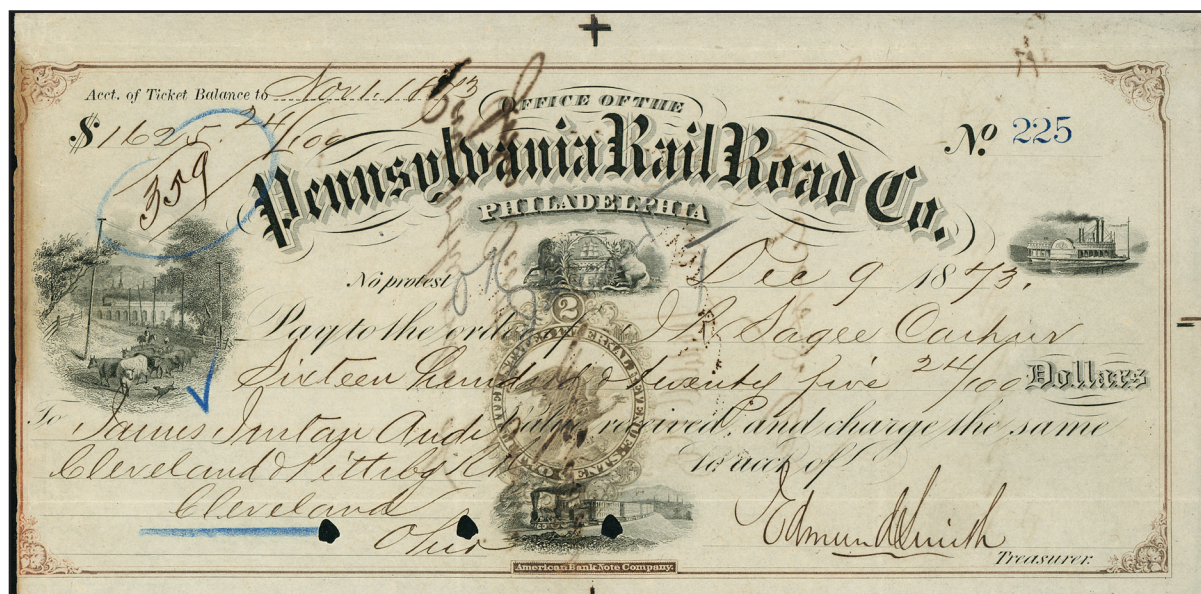 Acct. of Ticket Balance to Nov 1. 1873
$1625. 24/100
359
OFFICE OF THE
Pennsylvania Rail Road Co.
PHILADELPHIA
No. 225
No protest
Dec 9 1873.
Pay to the order of J R Cashier
Sixteen hundred & twenty five 24/100 Dollars
To James Aud value received, and charge the same
Cleveland & Pittsbg RR to acct of
Cleveland
Ohio
Edmund Smith
Treasurer.
2
American Bank Note Company.